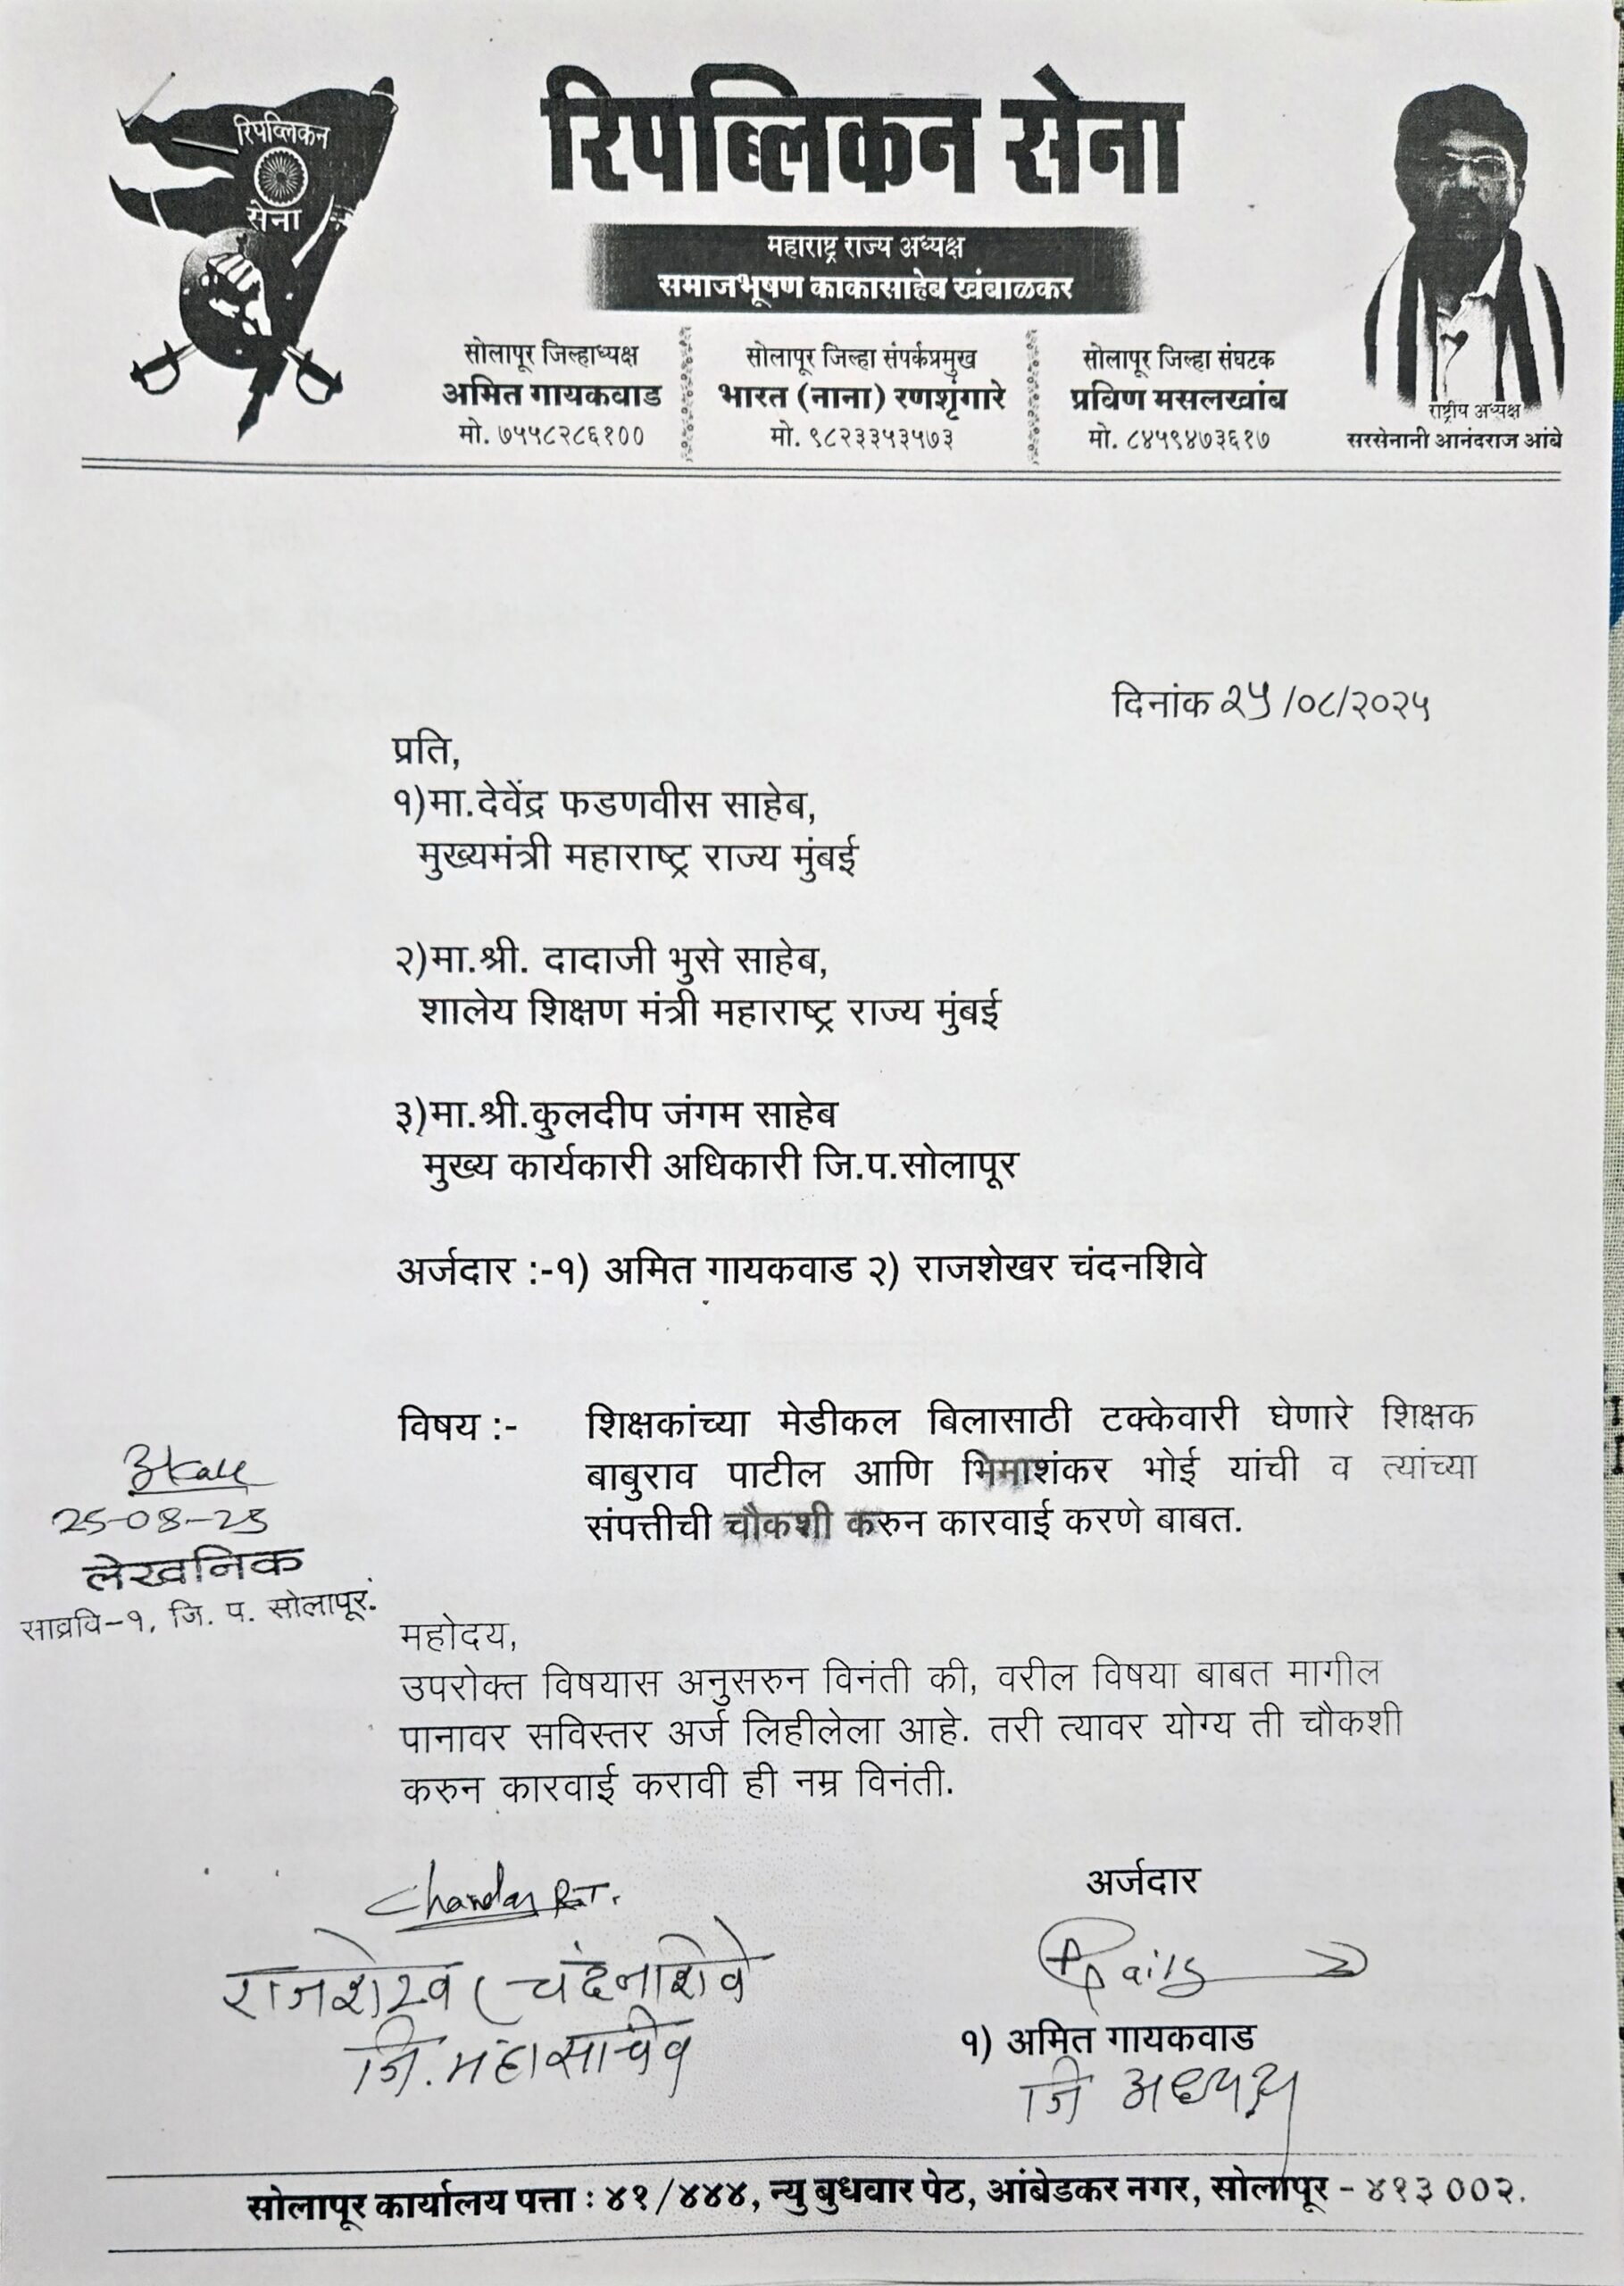 रिपब्लिकन
सेना
रिपब्लिकन सेना
महाराष्ट्र राज्य अध्यक्ष
समाजभूषण काकासाहेब खंबाळकर
सोलापूर जिल्हाध्यक्ष
अमित गायकवाड
मो. ७५५८२८६१००
सोलापूर जिल्हा संपर्कप्रमुख
भारत (नाना) रणशृंगारे
मो. ९८२३३५३५७३
सोलापूर जिल्हा संघटक
प्रविण मसलखांब
मो. ८४५९४७३६१७
राष्ट्रीय अध्यक्ष
सरसेनानी आनंदराज आंबे
दिनांक २५/०८/२०२५
प्रति,
१)मा.देवेंद्र फडणवीस साहेब,
मुख्यमंत्री महाराष्ट्र राज्य मुंबई
२)मा.श्री. दादाजी भुसे साहेब,
शालेय शिक्षण मंत्री महाराष्ट्र राज्य मुंबई
३)मा.श्री.कुलदीप जंगम साहेब
मुख्य कार्यकारी अधिकारी जि.प.सोलापूर
अर्जदार :-१) अमित गायकवाड २) राजशेखर चंदनशिवे
विषय :- शिक्षकांच्या मेडीकल बिलासाठी टक्केवारी घेणारे शिक्षक
बाबुराव पाटील आणि भिमाशंकर भोई यांची व त्यांच्या
संपत्तीची चौकशी करुन कारवाई करणे बाबत.
25-08-25
लेखनिक
साव्रवि-१, जि. प. सोलापूर.
महोदय,
उपरोक्त विषयास अनुसरुन विनंती की, वरील विषया बाबत मागील
पानावर सविस्तर अर्ज लिहीलेला आहे. तरी त्यावर योग्य ती चौकशी
करुन कारवाई करावी ही नम्र विनंती.
राजशेखर चंदनशिवे
जि. महासचिव
अर्जदार
१) अमित गायकवाड
जि अध्यक्ष
सोलापूर कार्यालय पत्ता : ४१/४४४, न्यु बुधवार पेठ, आंबेडकर नगर, सोलापूर - ४१३ ००२.